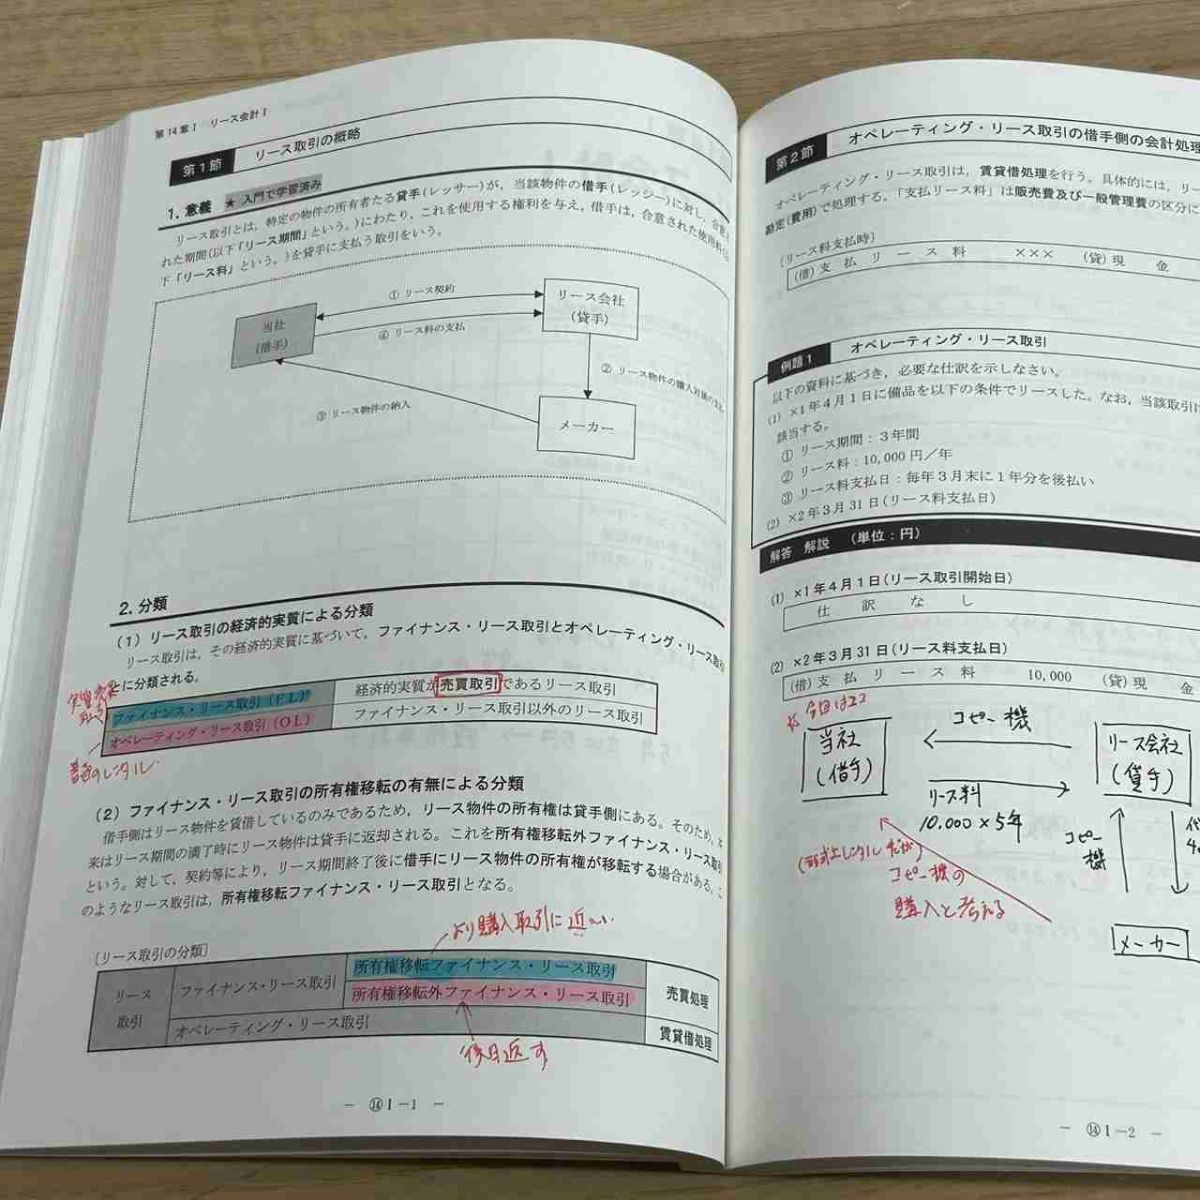 第14章Ⅰ リース会計Ⅰ
第1節 リース取引の概略
1. 意義 ★ 入門で学習済み
リース取引とは, 特定の物件の所有者たる貸手(レッサー)が, 当該物件の借手(レッシー)に対し, 合意さ
れた期間(以下「リース期間」という。)にわたり, これを使用する権利を与え, 借手は, 合意された使用料(以
下「リース料」という。)を貸手に支払う取引をいう。
① リース契約
リース会社
(貸手)
当社
(借手)
④ リース料の支払
② リース物件の購入対価の支払
③ リース物件の納入
メーカー
2. 分類
(1) リース取引の経済的実質による分類
リース取引は, その経済的実質に基づいて, ファイナンス・リース取引とオペレーティング・リース取引
とに分類される。
ファイナンス・リース取引(FL) 経済的実質が売買取引であるリース取引
オペレーティング・リース取引(OL) ファイナンス・リース取引以外のリース取引
普通のレンタル
(2) ファイナンス・リース取引の所有権移転の有無による分類
借手側はリース物件を賃借しているのみであるため, リース物件の所有権は貸手側にある。そのため, 本
来はリース期間の満了時にリース物件は貸手に返却される。これを所有権移転外ファイナンス・リース取引
という。対して, 契約等により, リース期間終了後に借手にリース物件の所有権が移転する場合がある。こ
のようなリース取引は, 所有権移転ファイナンス・リース取引となる。
より購入取引に近い
[リース取引の分類]
リース取引 ファイナンス・リース取引 所有権移転ファイナンス・リース取引 売買処理
所有権移転外ファイナンス・リース取引
オペレーティング・リース取引 賃貸借処理
後日返す
― ⑭Ⅰ-1 ―
第2節 オペレーティング・リース取引の借手側の会計処理
オペレーティング・リース取引は, 賃貸借処理を行う。具体的には, リー
勘定(費用)で処理する。「支払リース料」は販売費及び一般管理費の区分に
[リース料支払時]
(借) 支払リース料 ××× (貸) 現金
例題1 オペレーティング・リース取引
以下の資料に基づき, 必要な仕訳を示しなさい。
(1) ×1年4月1日に備品を以下の条件でリースした。なお, 当該取引は
該当する。
① リース期間：3年間
② リース料：10,000円／年
③ リース料支払日：毎年3月末に1年分を後払い
(2) ×2年3月31日(リース料支払日)
解答 解説 (単位：円)
(1) ×1年4月1日(リース取引開始日)
仕訳なし
(2) ×2年3月31日(リース料支払日)
(借) 支払リース料 10,000 (貸) 現金
今回はココ
当社
(借手)
コピー機
リース会社
(貸手)
リース料
10,000×5年
(形式上レンタルだが)
コピー機の
購入と考える
コピー
機
メーカー
― ⑭Ⅰ-2 ―